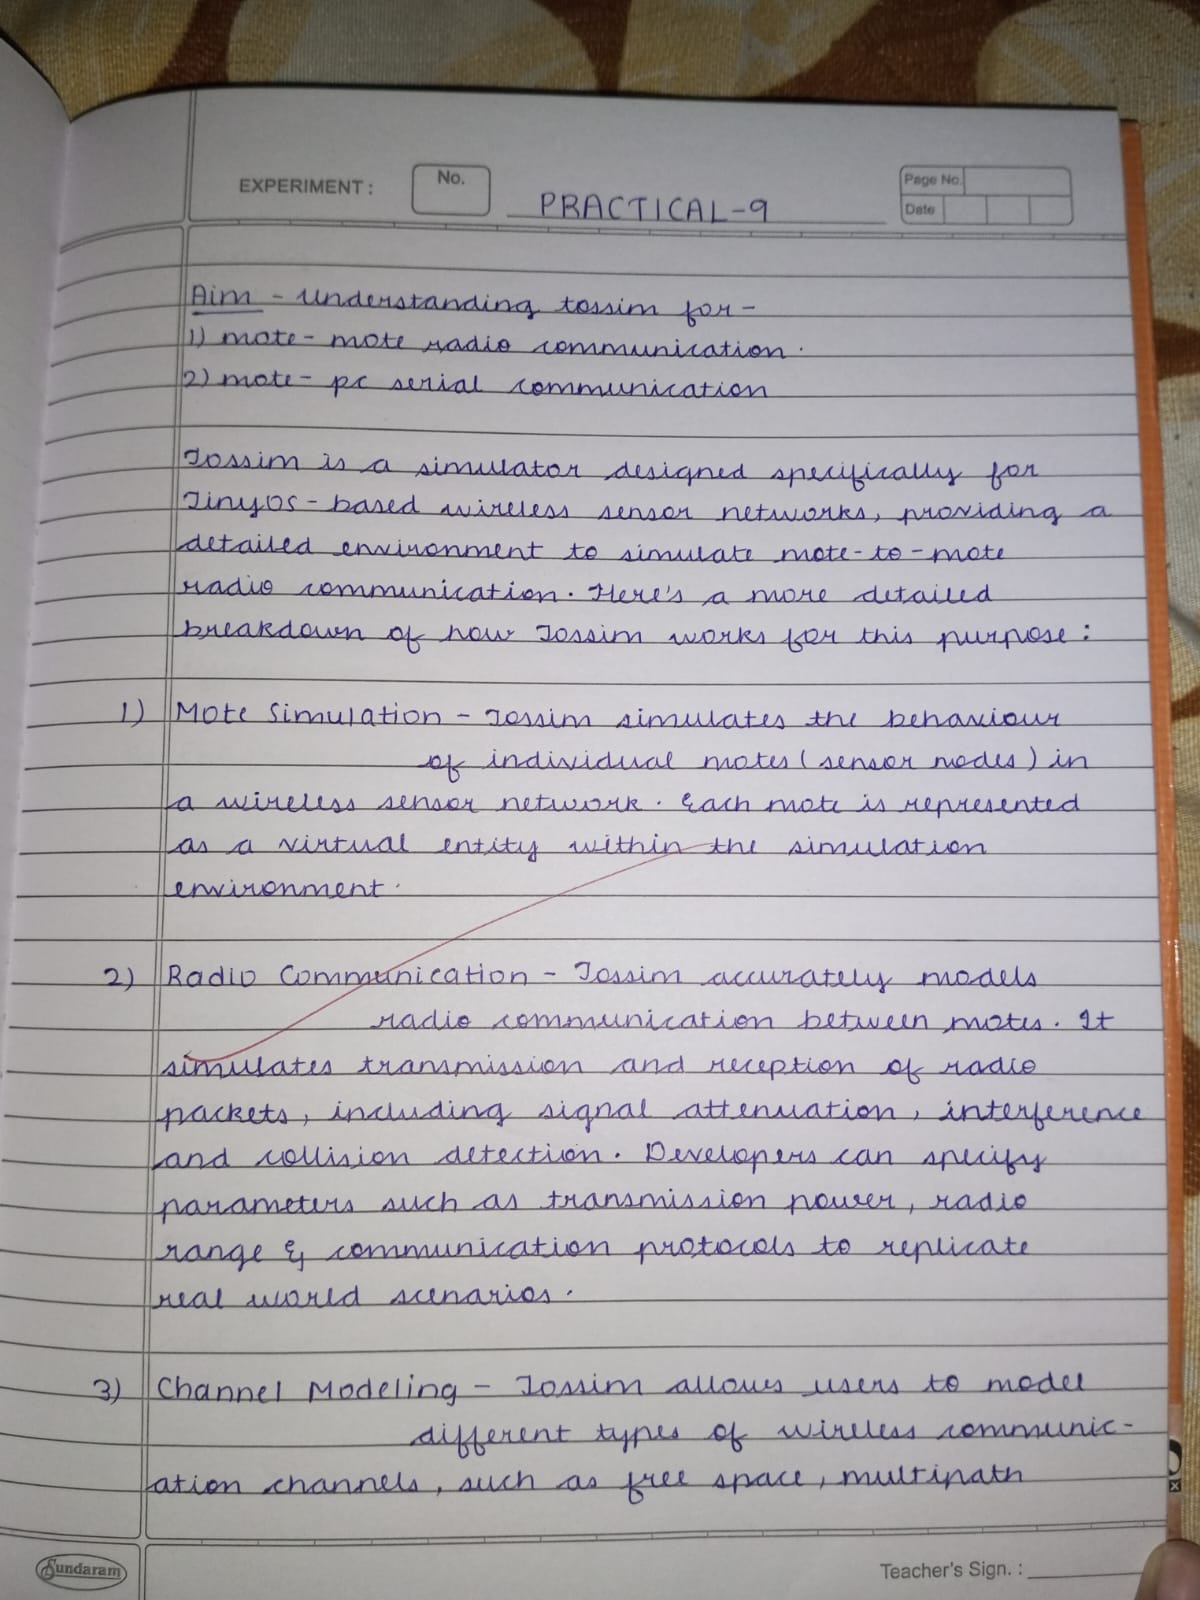 EXPERIMENT : No. PRACTICAL-9 Page No. Date
Aim - understanding tossim for -
1) mote - mote radio communication.
2) mote - pc serial communication
Tossim is a simulator designed specifically for
TinyOS - based wireless sensor networks, providing a
detailed environment to simulate mote-to-mote
radio communication. Here's a more detailed
breakdown of how Tossim works for this purpose :
1) Mote Simulation - Tossim simulates the behaviour
of individual motes (sensor nodes) in
a wireless sensor network. Each mote is represented
as a virtual entity within the simulation
environment.
2) Radio Communication - Tossim accurately models
radio communication between motes. It
simulates transmission and reception of radio
packets, including signal attenuation, interference
and collision detection. Developers can specify
parameters such as transmission power, radio
range & communication protocols to replicate
real world scenarios.
3) Channel Modeling - Tossim allows users to model
different types of wireless communic-
ation channels, such as free space, multipath
Sundaram
Teacher's Sign. :